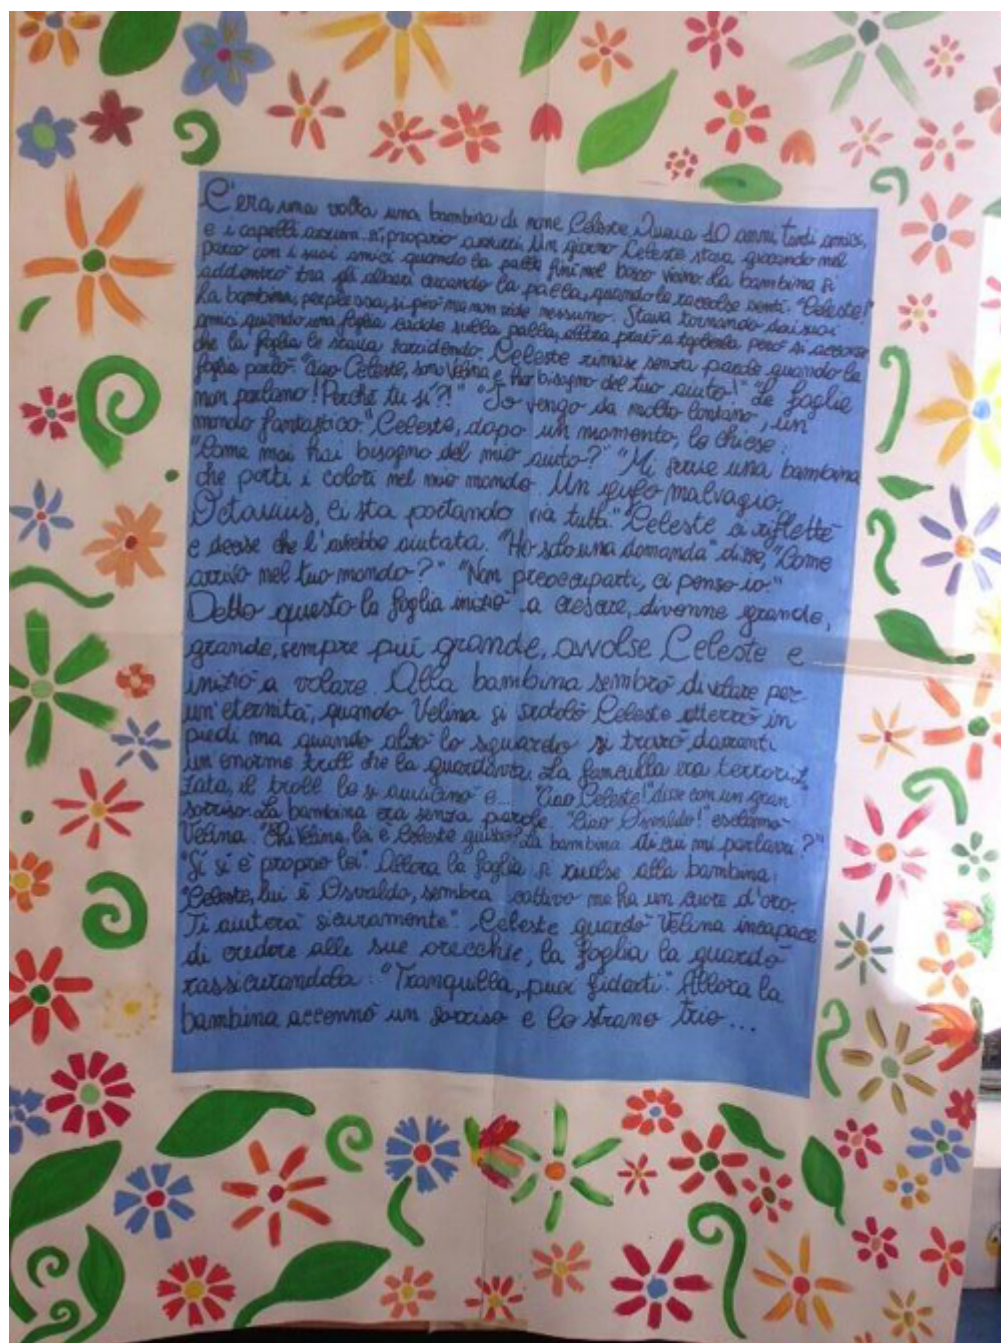 C'era una volta una bambina di nome Celeste. Aveva 10 anni tanti amici,
e i capelli azzurri. sì, proprio azzurri. Un giorno Celeste stava giocando nel
parco con i suoi amici quando la palla finì nel bosco vicino. La bambina si
addentrò tra gli alberi cercando la palla, quando la raccolse sentì: "Celeste!"
La bambina, perplessa, si girò ma non vide nessuno. Stava tornando dai suoi
amici quando una foglia cadde sulla palla, allora provò a toglierla però si accorse
che la foglia le stava sorridendo. Celeste rimase senza parole quando la
foglia parlò: "Ciao Celeste, son Velina e ho bisogno del tuo aiuto!" "Le foglie
non parlano! Perché tu sì?!" "Io vengo da molto lontano, un
mondo fantastico." Celeste, dopo un momento, le chiese:
"Come mai hai bisogno del mio aiuto?" "Mi serve una bambina
che porti i colori nel mio mondo. Un gufo malvagio,
Octavius, ci sta portando via tutti." Celeste ci rifletté
e decise che l'avrebbe aiutata. "Ho solo una domanda" disse, "Come
arrivo nel tuo mondo?" "Non preoccuparti, ci penso io."
Detto questo la foglia iniziò a crescere, divenne grande,
grande, sempre più grande, avvolse Celeste e
iniziò a volare. Alla bambina sembrò di volare per
un'eternità, quando Velina si srotolò Celeste atterrò in
piedi ma quando alzò lo sguardo si trovò davanti
un enorme troll che la guardava. La fanciulla era terroriz,
zata, il troll le si avvicinò e... "Ciao Celeste!" disse con un gran
sorriso. La bambina era senza parole. "Ciao Osvaldo!" esclamò
Velina. "Ehi Velina, lei è Celeste giusto? La bambina di cui mi parlavi?"
"Sì sì è proprio lei". Allora la foglia si rivolse alla bambina:
"Celeste, lui è Osvaldo, sembra cattivo ma ha un cuore d'oro.
Ti aiuterà sicuramente". Celeste guardò Velina incapace
di credere alle sue orecchie, la foglia la guardò
rassicurandola: "Tranquilla, puoi fidarti". Allora la
bambina accennò un sorriso e lo strano trio...